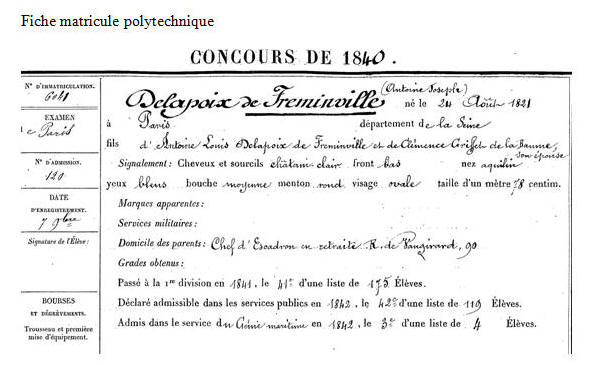 Fiche matricule polytechnique
CONCOURS DE 1840.
N° D'IMMATRICULATION.
6041
EXAMEN
de Paris
N° D'ADMISSION.
120
DATE
D'ENREGISTREMENT.
7 9bre
Signature de l'Élève :
BOURSES
ET DÉGRÈVEMENTS.
Trousseau et première
mise d'équipement.
(Antoine Joseph)
Delapoix de Freminville né le 24 Août 1821
à Paris département de la Seine
fils d'Antoine Louis Delapoix de Freminville et de Clémence Griffet de la Baume,
son épouse
Signalement : Cheveux et sourcils châtain clair front bas nez aquilin
yeux bleus bouche moyenne menton rond visage ovale taille d'un mètre 78 centim.
Marques apparentes :
Services militaires :
Domicile des parents : Chef d'Escadron en retraite R. de Vaugirard, 90
Grades obtenus :
Passé à la 1re division en 1841, le 41e d'une liste de 175 Élèves.
Déclaré admissible dans les services publics en 1842, le 42e d'une liste de 119 Élèves.
Admis dans le service du Génie maritime en 1842, le 3e d'une liste de 4 Élèves.